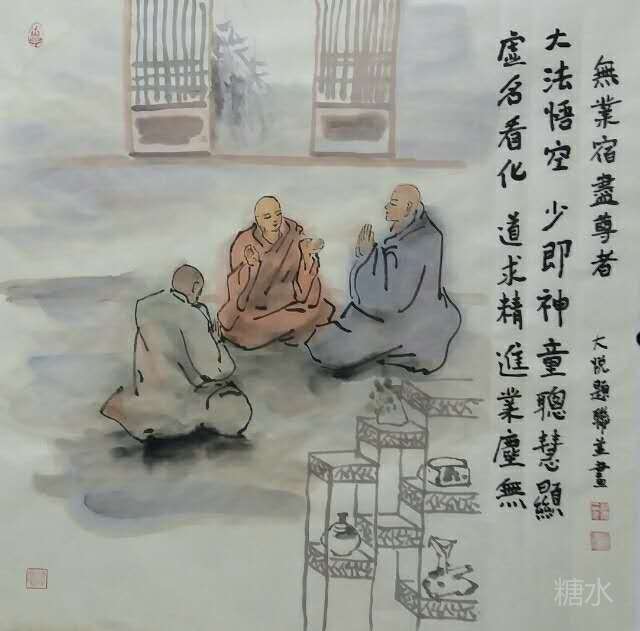 無業宿盡尊者
大悅題聯並畫
大法悟空 少即神童聰慧顯
虛名看化 道求精進業塵無
糖水